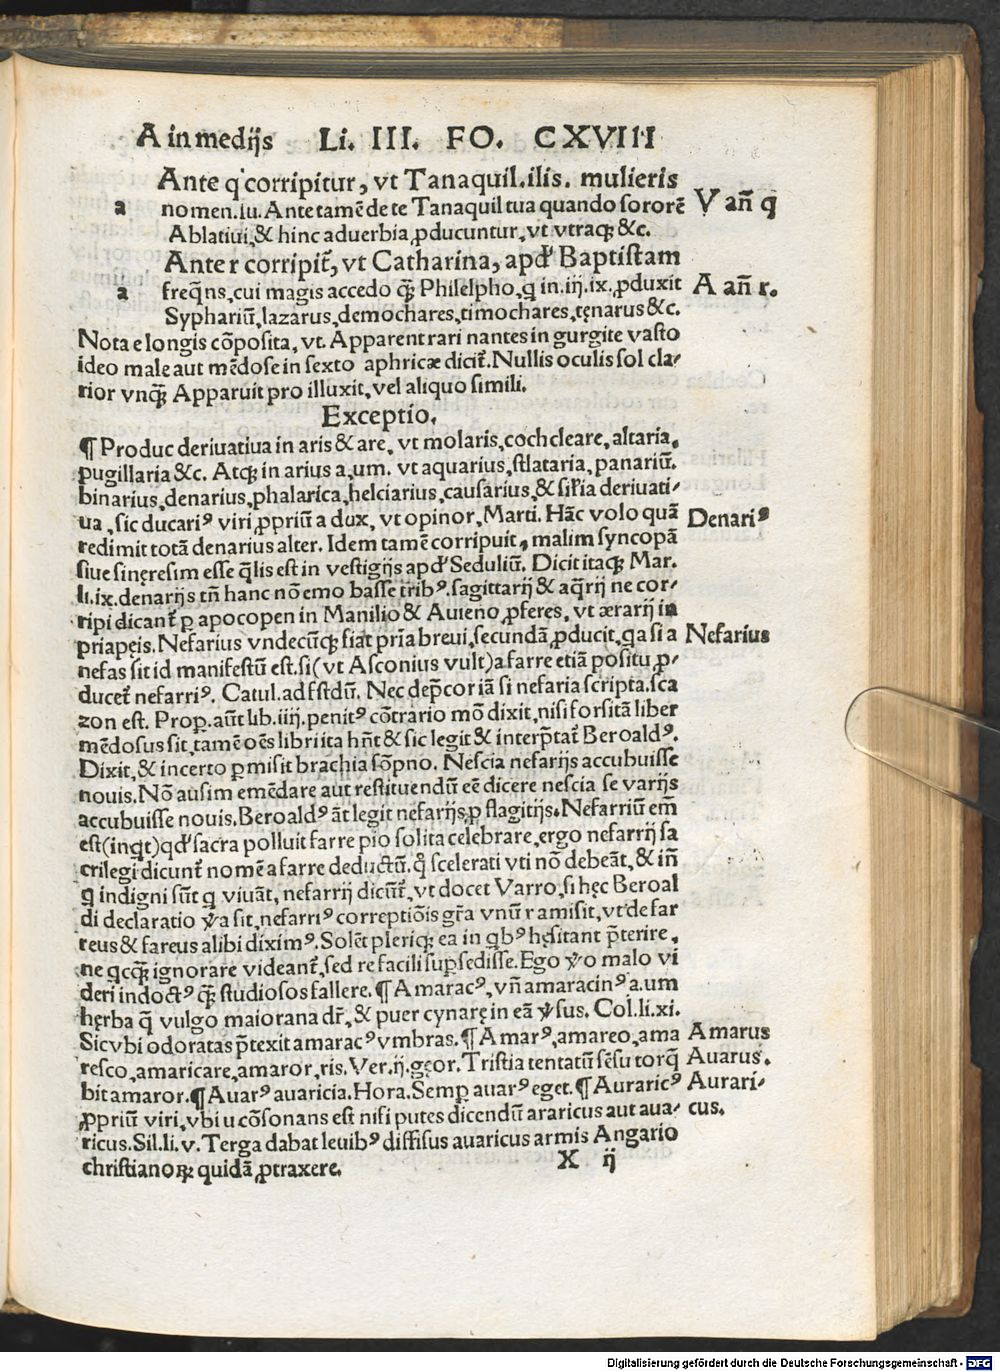 A in medijs Li. III. FO. CXVIII
Ante q corripitur, vt Tanaquil.ilis. mulieris
a nomen.iu. Ante tamē de te Tanaquil tua quando sororē V añ q
Ablatiui,& hinc aduerbia ꝓducuntur, vt vtraqꝫ &c.
Ante r corripit᷑, vt Catharina, apd' Baptistam
a freq̄ns, cui magis accedo q̄ꝫ Philelpho, q in.iij.ix.ꝓduxit A añ r.
Sypharíū, lazarus, demochares, timochares, tęnarus &c.
Nota e longis cōposita, vt. Apparent rari nantes in gurgite vasto
ideo male aut mēdose in sexto aphricæ dicit᷑. Nullis oculis sol cla/
rior vnq̄ꝫ Apparuit pro illuxit, vel aliquo simili.
Exceptio.
¶ Produc deriuatiua in aris & are, vt molaris, cochcleare, altaria,
pugillaria &c. Atqꝫ in arius a, um. vt aquarius, stlataria, panariū.
binarius, denarius, phalarica, helciarius, causarius, & sil'ia deriuati/
ua, sic ducariꝰ viri ꝓpriū a dux, vt opinor, Marti. Hāc volo quā Denariꝰ
redimit totā denarius alter. Idem tamē corripuit, malim syncopā
siue sinęresim esse q̄lis est in vestigijs apd' Seduliū. Dicit itaqꝫ Mar.
li.ix. denarijs tn̄ hanc nō emo basse tribꝰ. sagittarij & aq̄rij ne cor/
ripi dicant᷑ ꝑ apocopen in Manilio & Auieno ꝓferes, vt ærarij in
priapęis. Nefarius vndecūqꝫ fiat pri̅a breui, secundā ꝓducit, qa si a Nefarius
nefas sit id manifestū est. si (vt Asconius vult) a farre etiā positu ꝓ/
ducet᷑ nefarriꝰ. Catul. ad fstdū. Nec dep̄cor iā si nefaria scripta. sca
zon est. Prop. aūt lib.iiij. penitꝰ cōtrario mō dixit, nisi forsitā liber
mēdosus sit, tamē oēs libri ita hn̄t & sic legit & interp̄tat᷑ Beroaldꝰ.
Dixit, & incerto ꝑmisit brachia sōpno. Nescia nefarijs accubuisse
nouis. Nō ausim emēdare aut restituendū eē dicere nescia se varijs
accubuisse nouis. Beroaldꝰ āt legit nefarijs, ꝑ flagitijs. Nefarriū em̄
est (inqt) qd' sacra polluit farre pio solita celebrare, ergo nefarrij sa
crilegi dicunt᷑ nomē a farre deductū. q̄ scelerati vti nō debeāt, & in̄
q indigni sūt q viuāt, nefarrij dicūt᷑, vt docet Varro, si hęc Beroal
di declaratio v̓a sit, nefarriꝰ correptiōis gr̄a vnū r amisit, vt de far
reus & fareus alibi diximꝰ. Solēt pleriqꝫ ea in qbꝰ hęsitant p̄terire,
ne qcq̄ꝫ ignorare videant᷑, sed re facili supsedisse. Ego v̓o malo vi
deri indoctꝰ q̄ꝫ studiosos fallere. ¶ Amaracꝰ, vn̄ amaracinꝰ a.um
hęrba q̄ vulgo maiorana dr̄, & puer cynaręin eā v̓sus. Col.li.xi.
Sicvbi odoratas p̄texit amaracꝰ vmbras. ¶ Amarꝰ, amareo, ama Amarus
resco, amaricare, amaror, ris. Ver.ij.gęor. Tristia tentatū sēsu torq̄ Auarus.
bit amaror. ¶ Auarꝰ auaricia. Hora. Semp auarꝰ eget. ¶ Auraricꝰ Aurari/
ꝓpriū viri, vbi u cōsonans est nisi putes dicendū araricus aut aua/ cus.
ricus. Sil.li.v. Terga dabat leuibꝰ diffisus auaricus armis Angario
christianoꝝ quidā ꝓtraxere. X ij
Digitalisierung gefördert durch die Deutsche Forschungsgemeinschaft - DFG